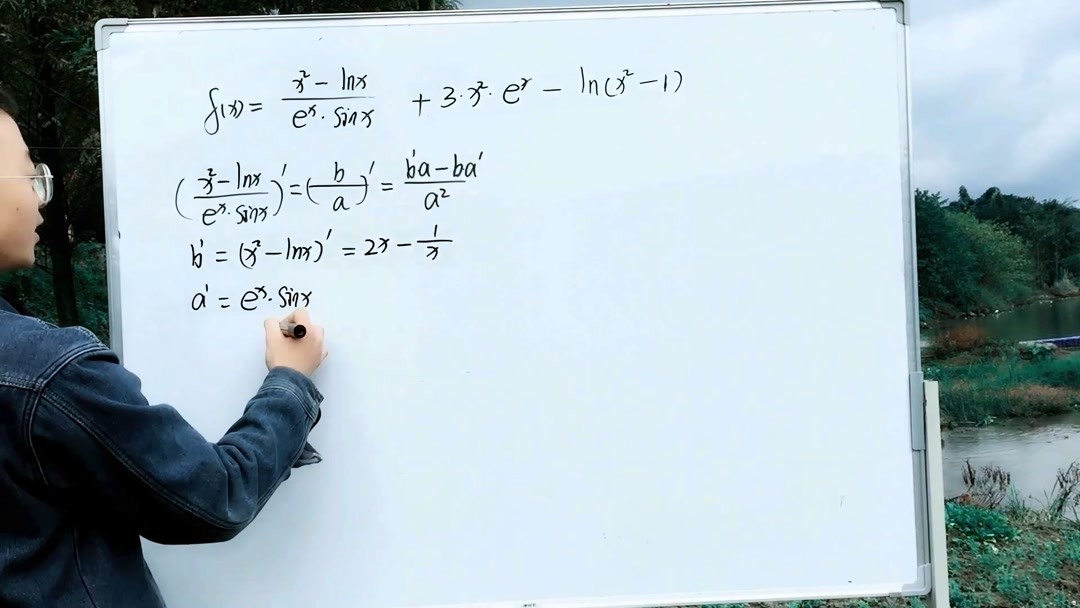 f(x) = (x² - lnx)/(eˣ · sinx) + 3·x²·eˣ - ln(x² - 1)
((x² - lnx)/(eˣ · sinx))' = (b/a)' = (b'a - ba')/a²
b' = (x² - lnx)' = 2x - 1/x
a' = eˣ · sinx